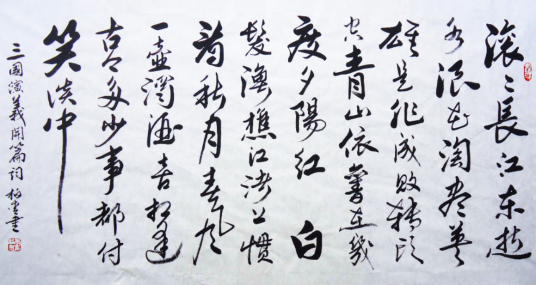 滚〻長江东逝
水浪花淘尽英
雄是非成败转头
空青山依舊在幾
度夕陽红 白
髮漁樵江渚上惯
看秋月春风
一壶濁酒喜相逢
古今多少事都付
笑谈中
三國演義開篇词 書